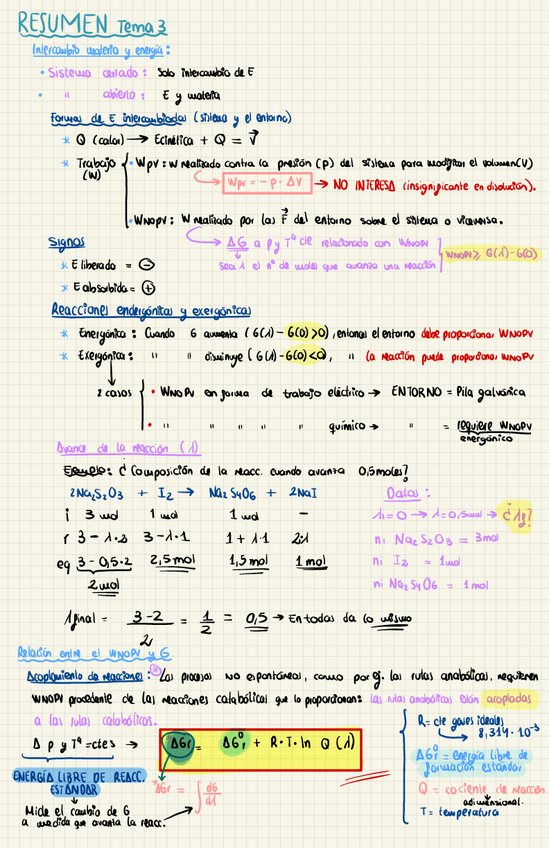 RESUMEN Tema 3
Intercambio materia y energía:
• Sistema cerrado: Solo intercambio de E
• " abierto: E y materia
Formas de E intercambiadas (sistema y el entorno)
* Q (calor) → Ecinética + Q = V
* Trabajo (W)
• Wpv: W realizado contra la presión (p) del sistema para modificar el volumen (V)
Wpv = -p · ΔV → NO INTERESA (insignificante en disolución).
• Wnopv: W realizado por las F del entorno sobre el sistema o viceversa.
ΔG a p y Tª cte relacionado con WNOPV
Sea λ el nº de moles que avanza una reacción
WNOPV ≥ G(λ) - G(0)
Signos
* E liberada = ⊖
* E absorbida = ⊕
Reacciones endergónicas y exergónicas
* Energónica: Cuando G aumenta (G(λ) - G(0) > 0), entonces el entorno debe proporcionar WNOPV
* Exergónica: " " disminuye (G(λ) - G(0) < 0), " (la reacción puede proporcionar WNOPV
2 casos
• WNOPV en forma de trabajo eléctrico → ENTORNO = Pila galvánica
• " " " " " químico → " = requiere WNOPV
energónico
Avance de la reacción (λ)
Ejemplo: ¿Composición de la reacc. cuando avanza 0,5 moles?
2Na₂S₂O₃ + I₂ → Na₂S₄O₆ + 2NaI
i 3 mol 1 mol 1 mol -
r 3 - λ·2 3 - λ·1 1 + λ·1 2·λ
eq 3 - 0,5·2 2,5 mol 1,5 mol 1 mol
2 mol
Datos:
λi = 0 → λ = 0,5 mol → ¿λf?
ni Na₂S₂O₃ = 3 mol
ni I₂ = 1 mol
ni Na₂S₄O₆ = 1 mol
λfinal = 3-2/2 = 1/2 = 0,5 → En todas da lo mismo
Relación entre el WNOPV y G
Acoplamiento de reacciones: Los procesos no espontáneos, como por ej. las rutas anabólicas, requieren
WNOPV procedente de las reacciones catabólicas que lo proporcionan: las rutas anabólicas están acopladas
a las rutas catabólicas.
Δ p y Tª = ctes → ΔGr = ΔG°r + R·T·ln Q (λ)
ENERGÍA LIBRE DE REACC.
ESTÁNDAR
Mide el cambio de G
a medida que avanza la reacc.
ΔGr = ∫ dG/dλ
R = cte gases ideales
8,314·10⁻³
ΔG°r = energía libre de
formación estándar
Q = cociente de reacción
adimensional.
T = temperatura